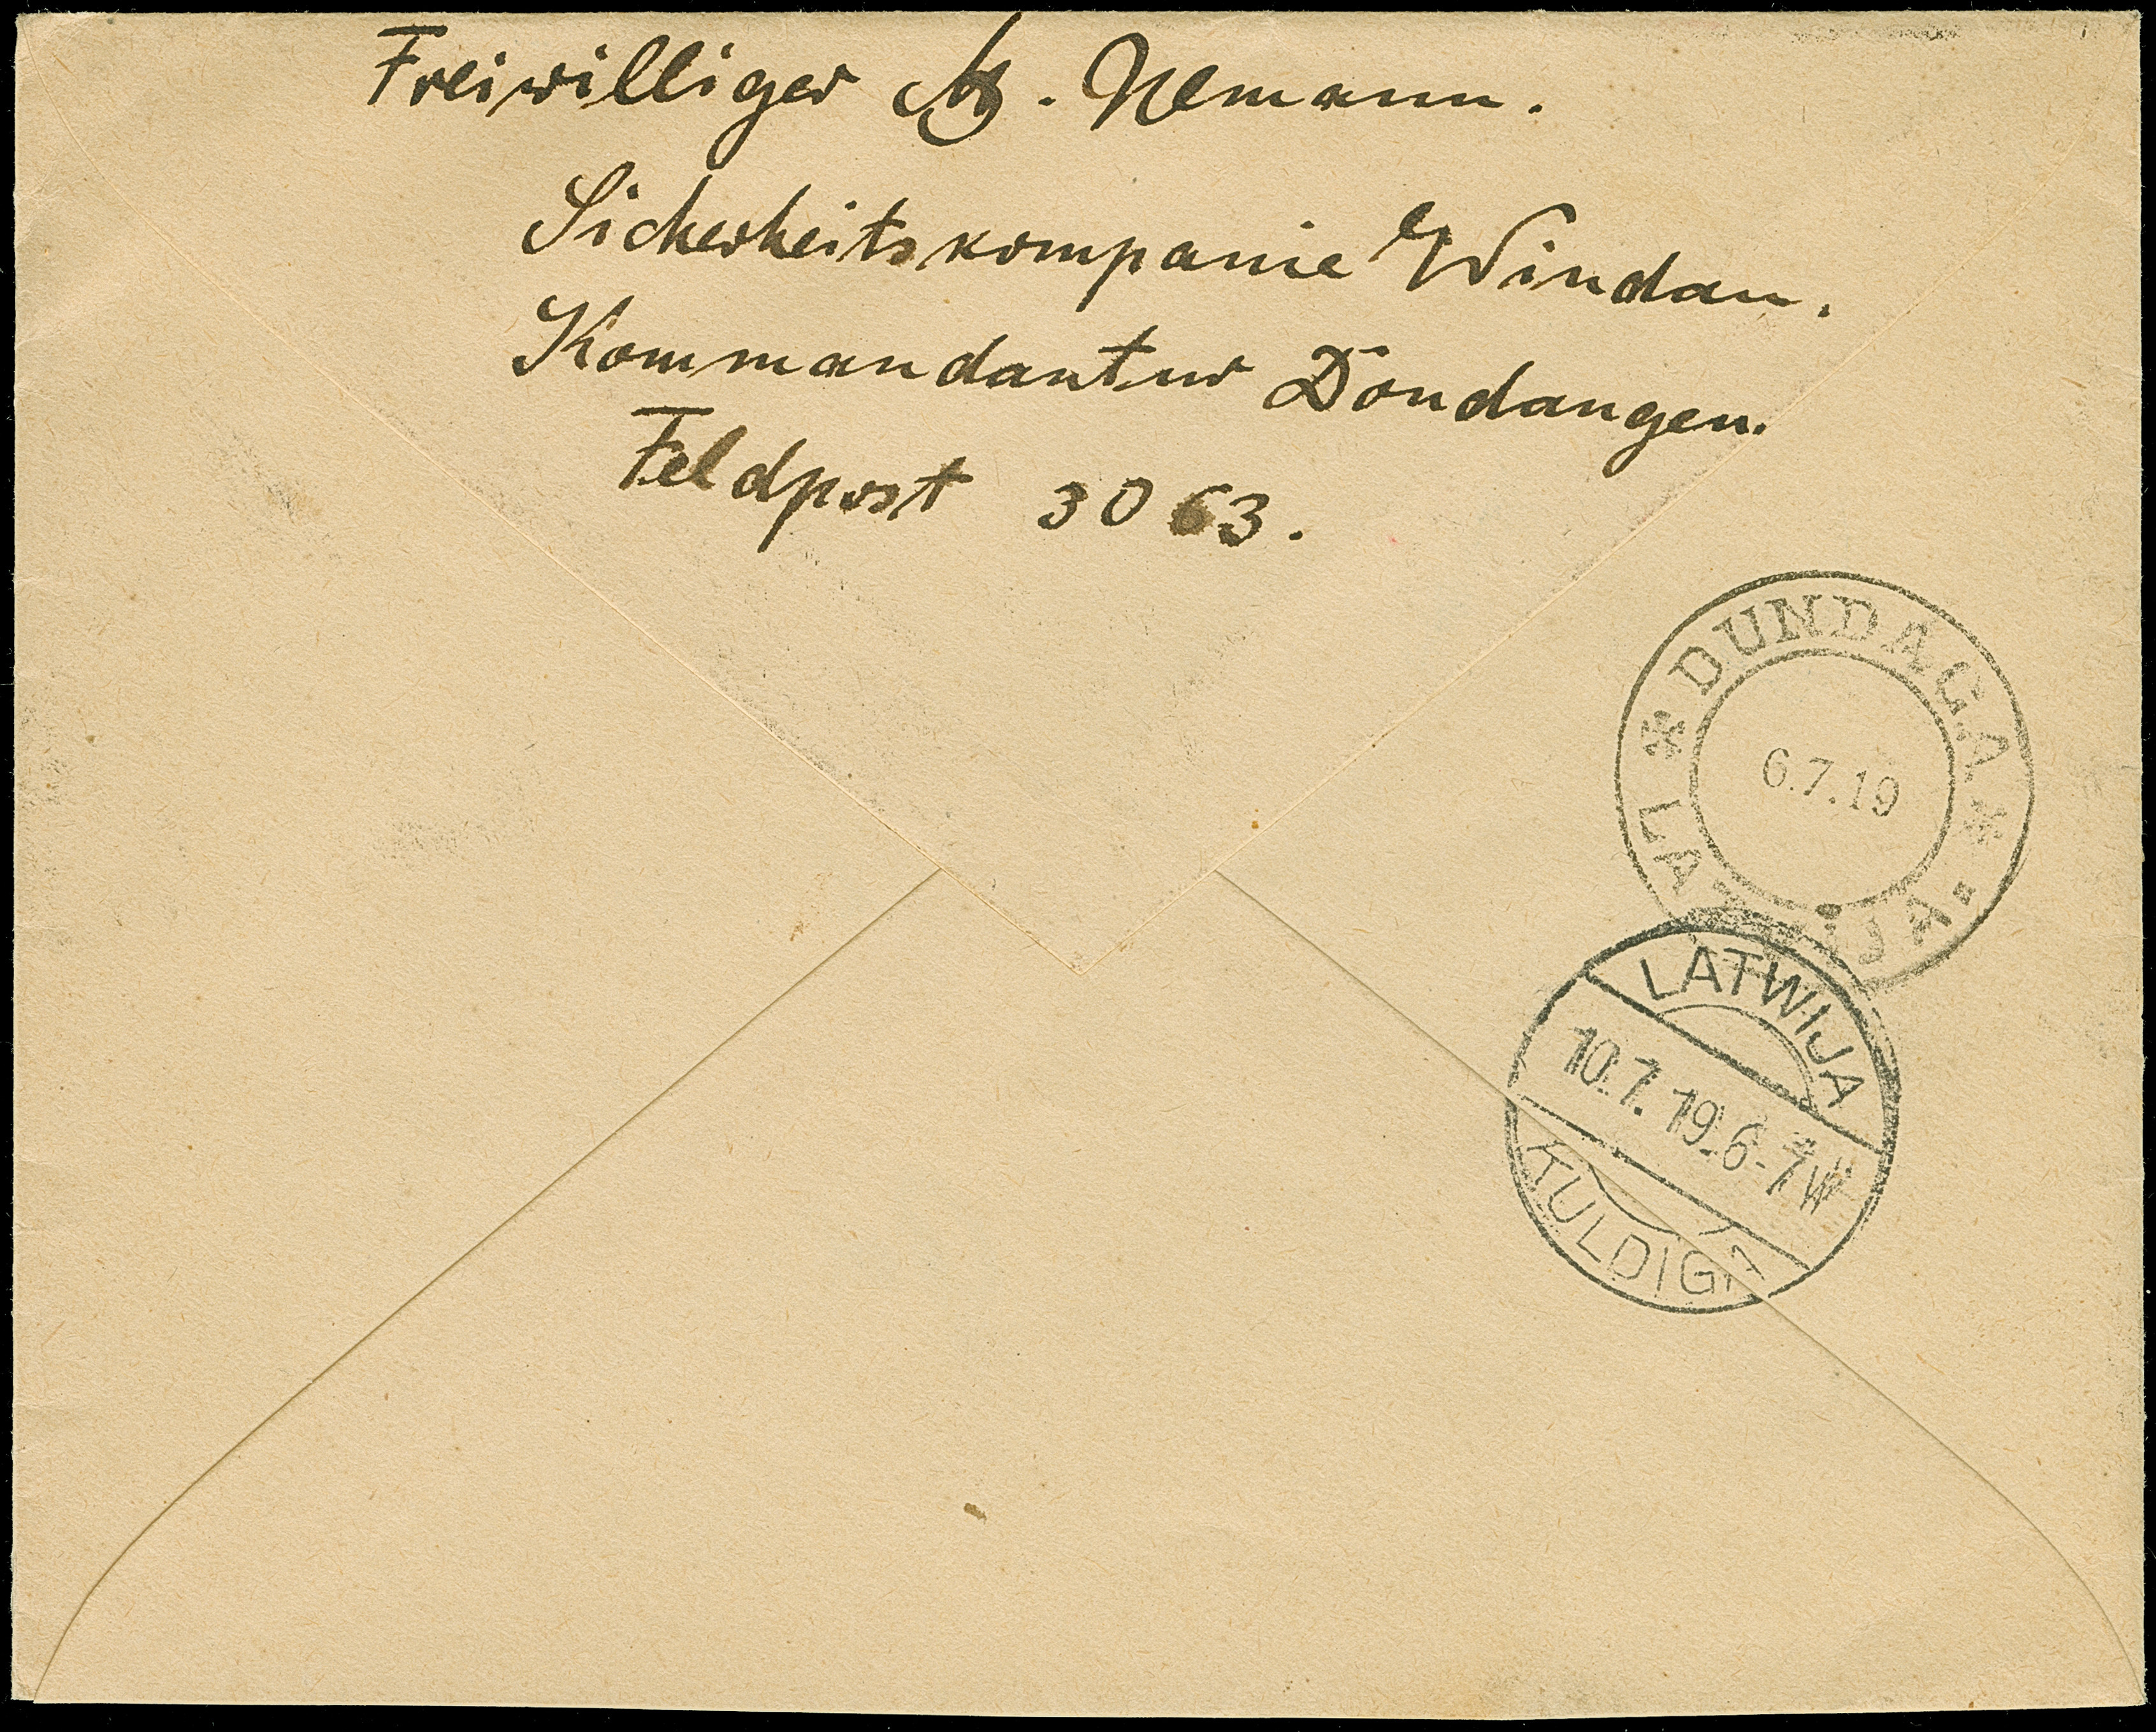 Freiwilliger A. Ulmann.
Sicherheitskompanie Windau.
Kommandantur Dondangen.
Feldpost 3063.
* DUNDAGA *
6.7.19
LATWIJA
LATWIJA
10.7.19.6-7
KULDIGA